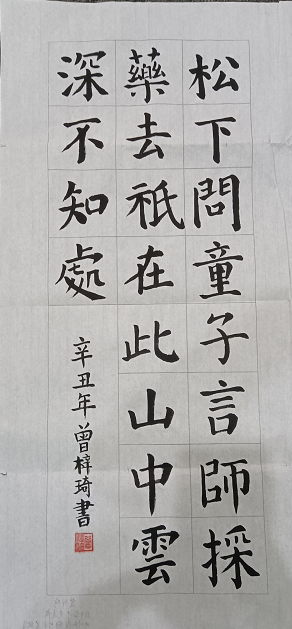 松下問童子言師採
藥去祇在此山中雲
深不知處
辛丑年曾梓琦書